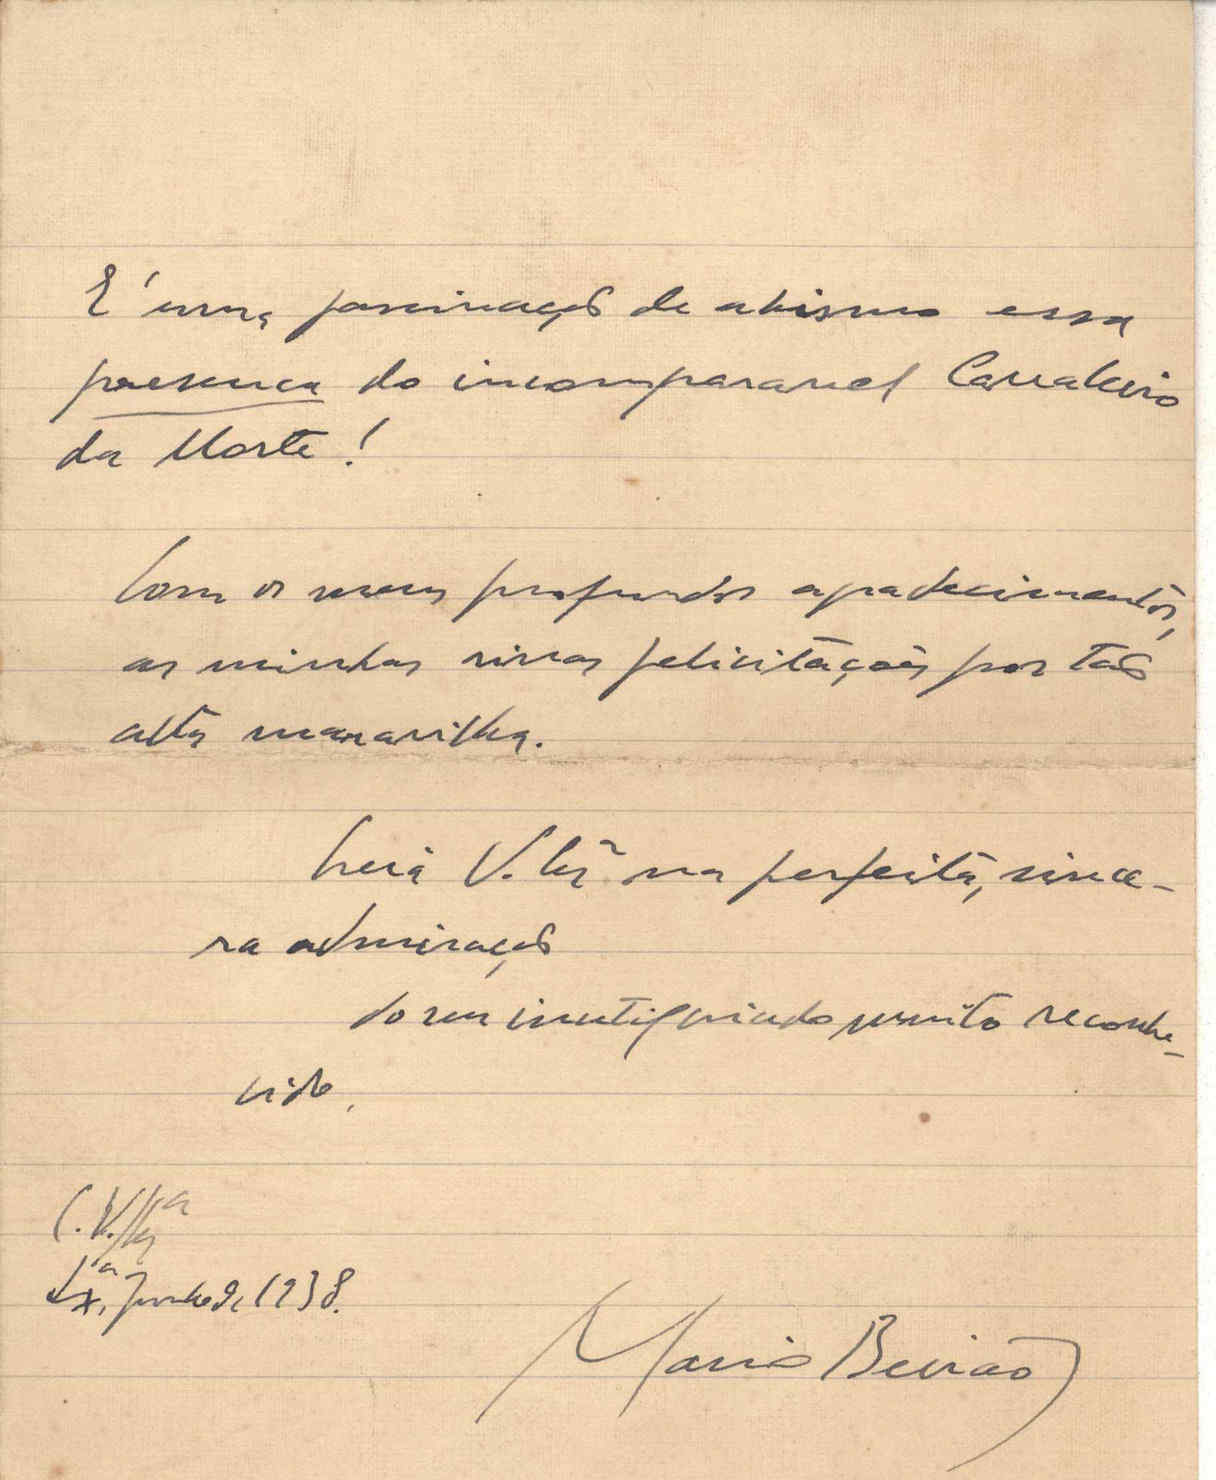 É uma fascinação de abismo essa
presença do incomparavel Cavaleiro
da Morte!
Com os meus profundos agradecimentos,
as minhas vivas felicitações por tão
alta maravilha.
Creia V. Exª na perfeita, since-
ra admiração
do seu muito reconhe-
cido,
Lxª, Junho de 1938.
Mario Beirão